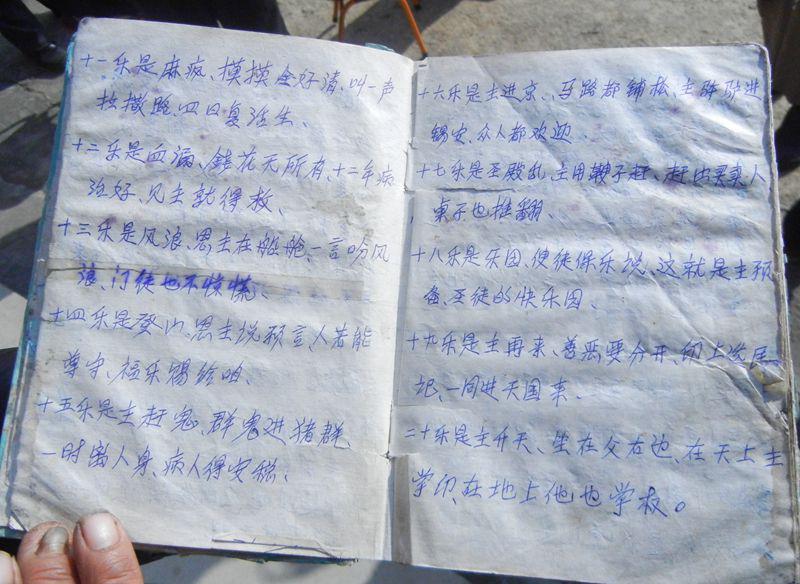 十一乐是麻疯、摸摸全好清、叫一声
拉撒路、四日复活生、
十二乐是血漏、钱花无所有、十二年病
治好、见主就得救、
十三乐是风浪、恩主在船舱、一言吩风
浪、门徒也不惊慌、
十四乐是登山、恩主说预言、人若能
尊守、福乐赐给咱、
十五乐是主赶鬼、群鬼进猪群、
一时离人身、病人得安稳、
十六乐是主进京、马路都铺松、主骑驴进
锡安、众人都欢迎、
十七乐是圣殿乱、主用鞭子赶、赶出买卖人
桌子也推翻、
十八乐是乐园、使徒保乐说、这就是主预
备、圣徒的快乐园、
十九乐是主再来、善恶要分开、
记、一同进天国来、
二十乐是主升天、坐在父右边、在天上主
学印、在地上他也学权。